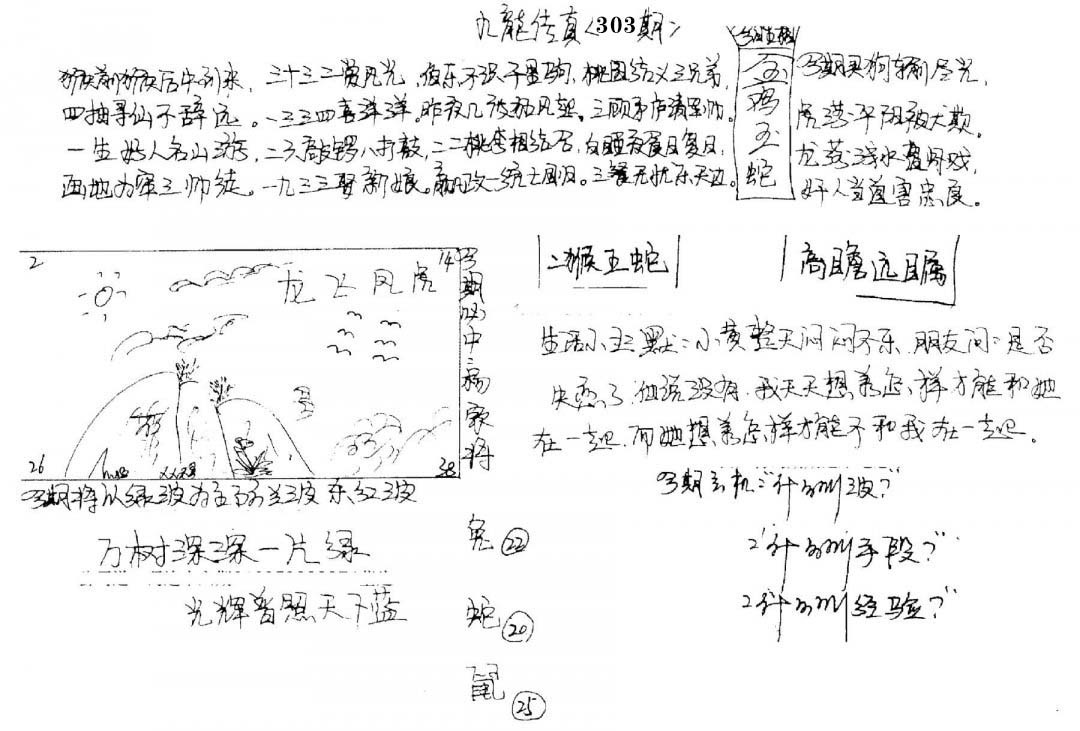 九龍传真<303期>
猴前猴后牛到来，三十三二赏月光，伯乐不识千里驹，桃园结义三兄弟，
四抽寻仙不辞远。一三三四喜洋洋。昨夜几被狂风起。三顾茅庐请军师。
一生好人名山游，二六敲锣八打鼓，二二桃李相结否，白昼夜复日复日，
画地为牢三师徒。一九三三娶新娘。嬴政一统七国归。三餐无忧乐天边。
金鸡玉蛇
另期买狗输尽光，
虎落平阳被犬欺。
龙落浅水鱼虾戏，
好人当道害忠良。
2 14
龙飞凤虎
26 38
另期必中杨家将
另期将以绿波为主防兰波杀红波
万树深深一片绿
光辉普照天下蓝
二猴五蛇
高瞻远瞩
生活小幽默：小黄整天闷闷不乐，朋友问：是否
失恋了，他说没有，我天天想着怎样才能和她
在一起，而她想着怎样才能不和我在一起。
另期玄机：“什么叫波？”
2“什么叫手段？”
2“什么叫经验？”
兔 22
蛇 20
鼠 25